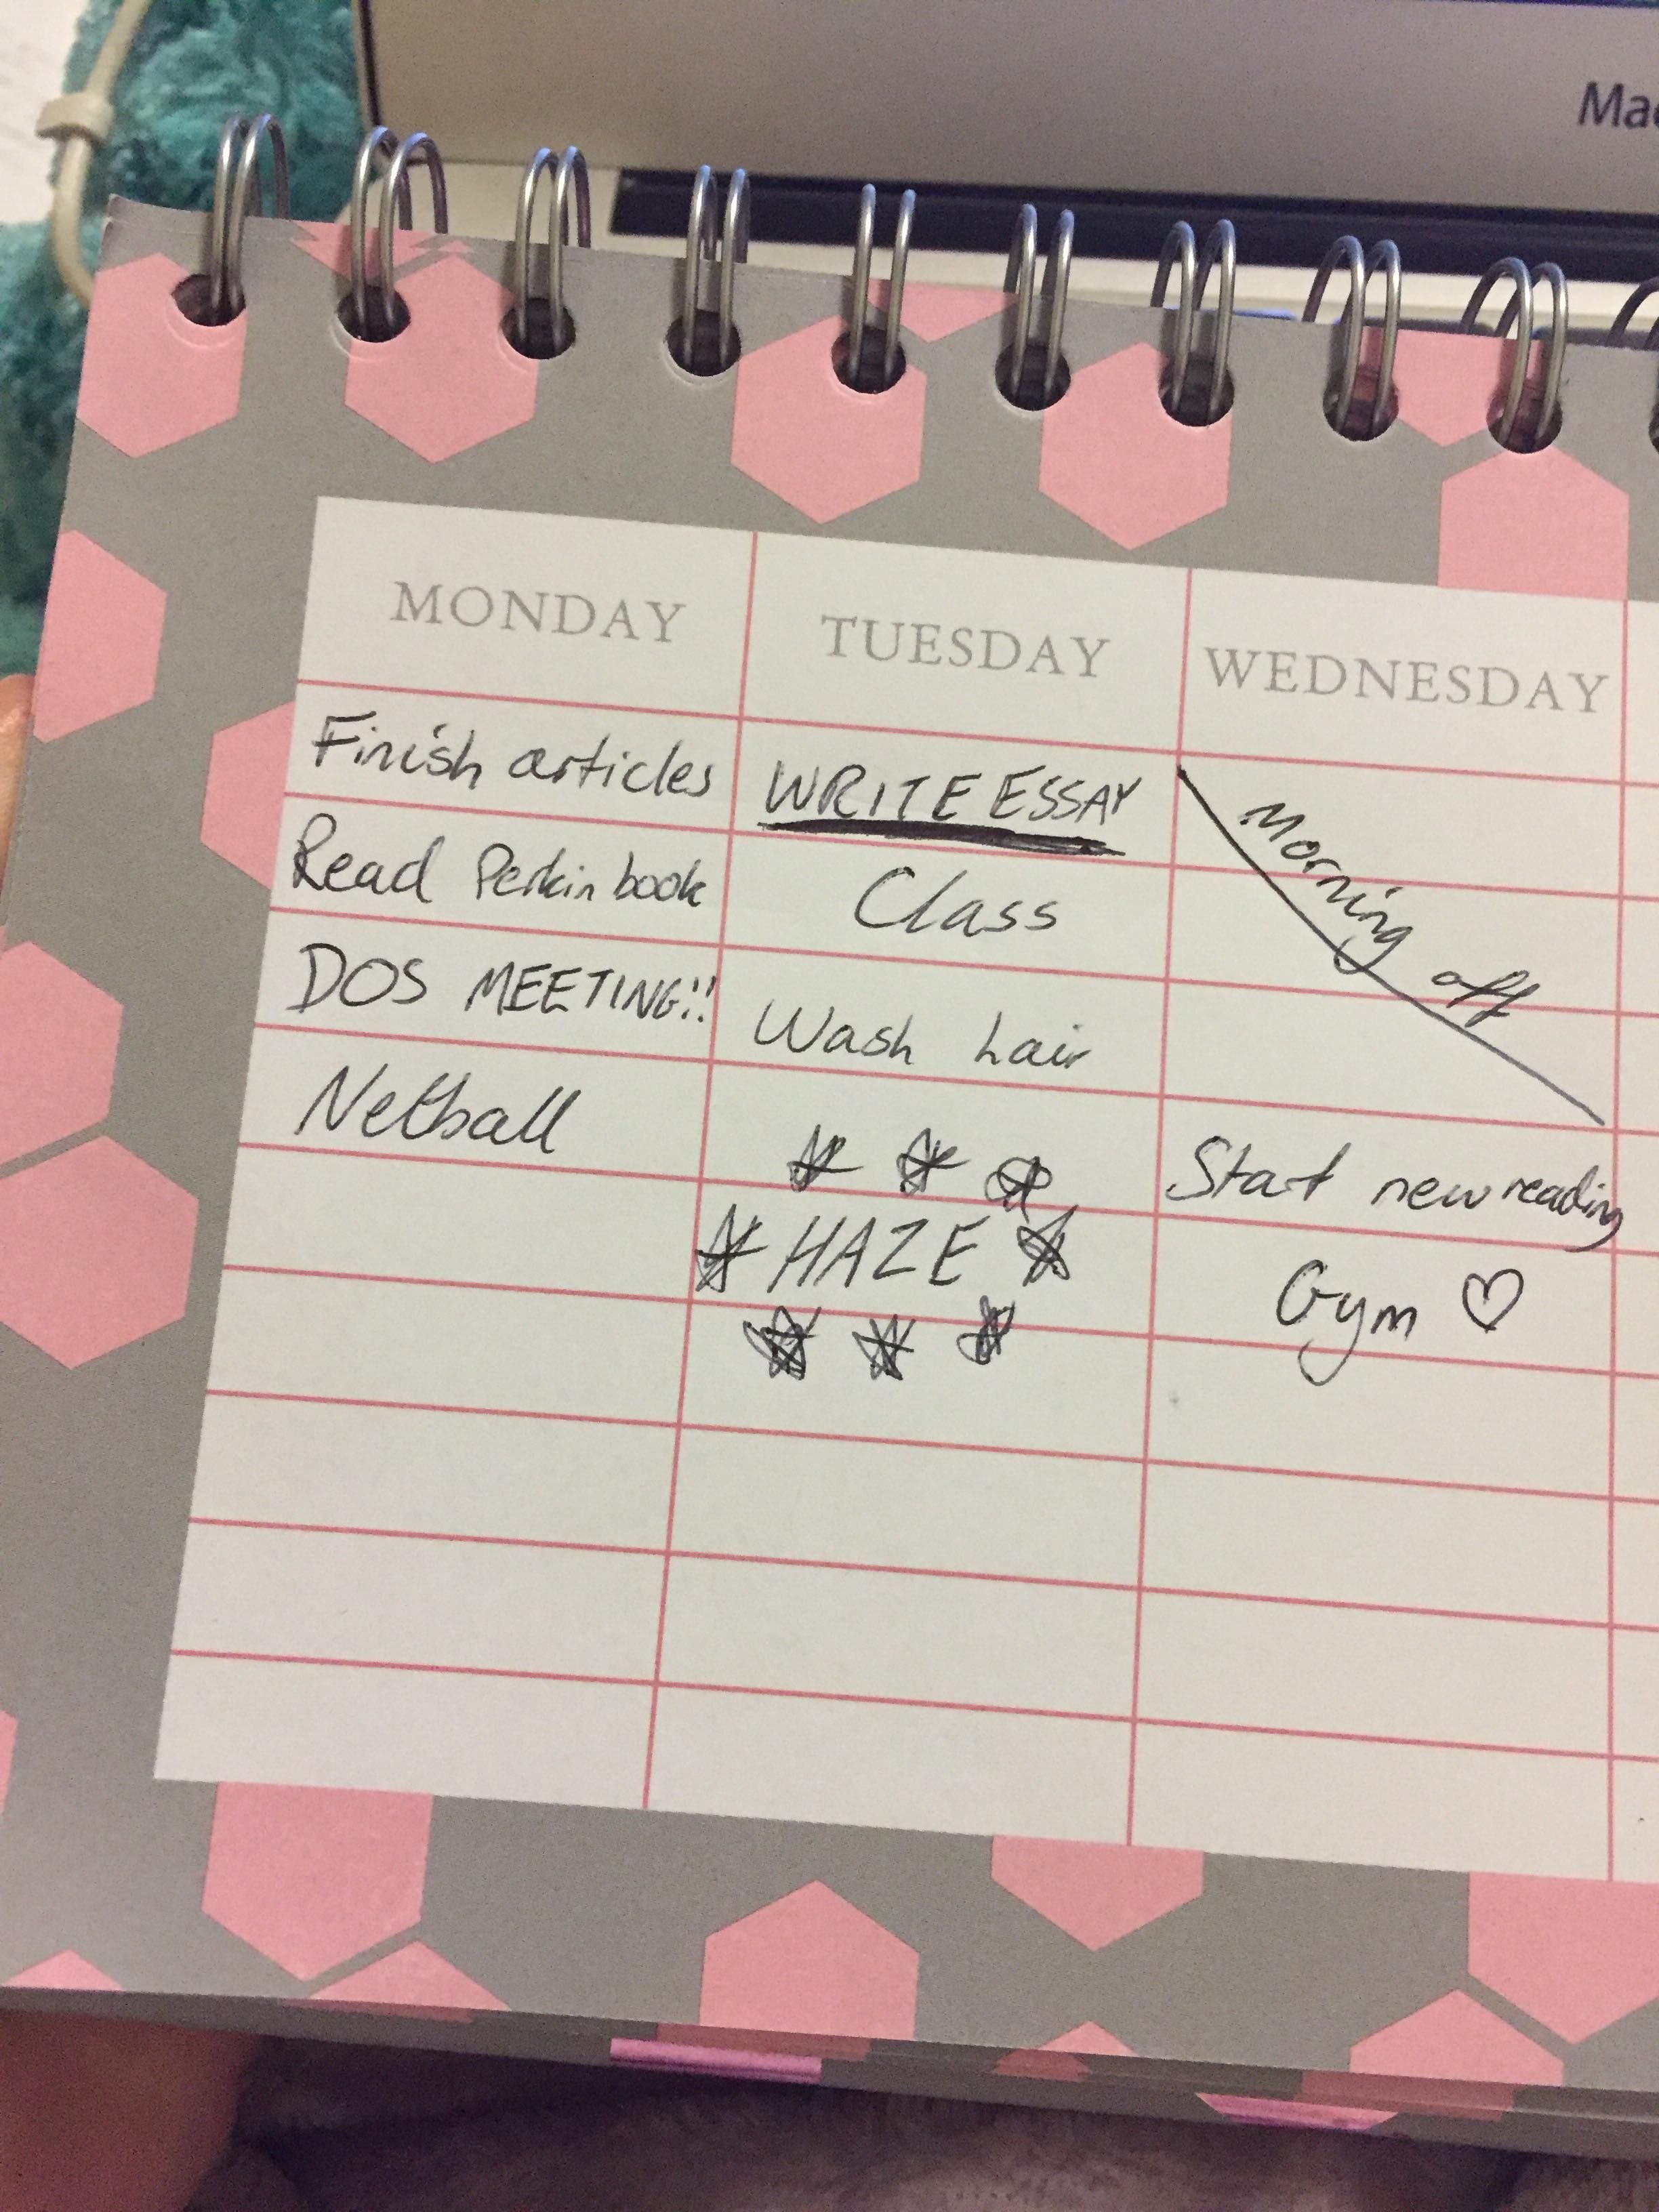 Mac
MONDAY
Finish articles
Read Perkin book
DOS MEETING!!
Netball
TUESDAY
WRITE ESSAY
Class
Wash hair
HAZE
WEDNESDAY
Morning off
Start new reading
Gym ♡